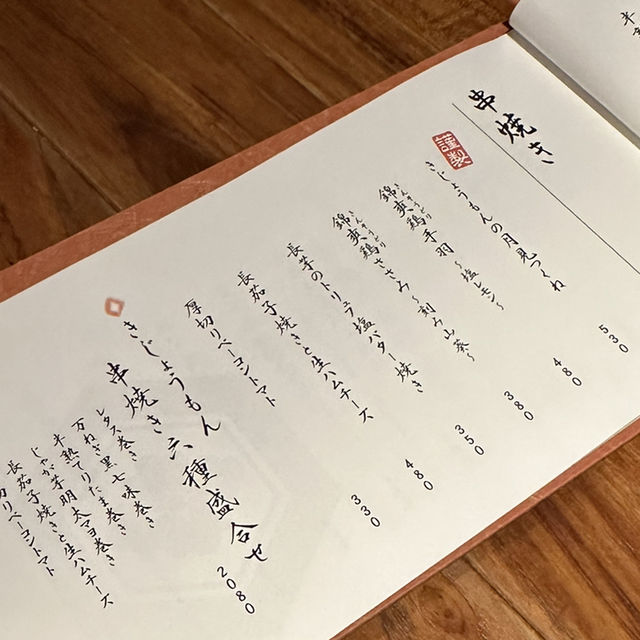 串焼き
謹製
きじょうもんの月見つくね
530
錦爽鶏手羽~塩レモン~
きんそうどり
480
錦爽鶏ささみ~刻み山葵~
きんそうどり
380
長芋のトリュフ塩バター焼き
350
長茄子焼きと生ハムチーズ
480
厚切りベーコントマト
330
きじょうもん
串焼き六種盛合せ
2080
レタス巻き
万ねぎ黒七味巻き
半熟てりたま巻き
じゃが芋明太マヨ巻き
長茄子焼きと生ハムチーズ
切りベーコントマト